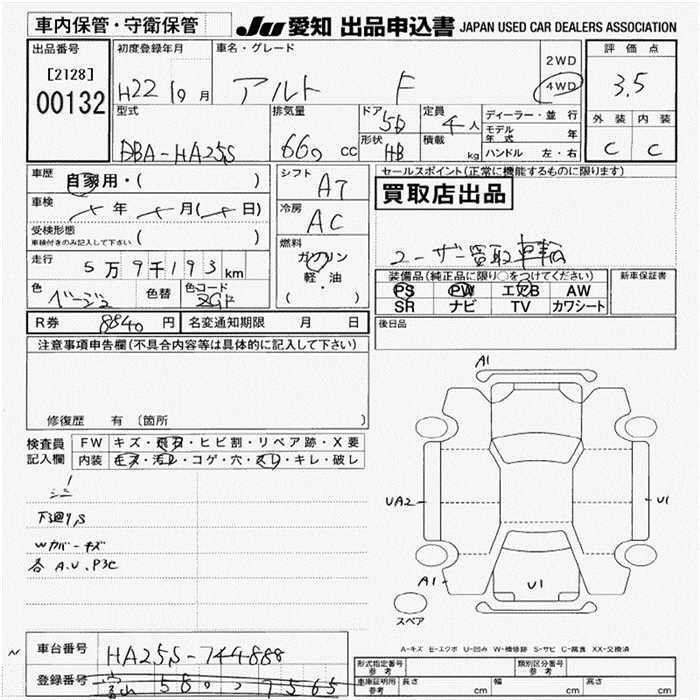 車内保管・守衛保管
JU 愛知 出品申込書 JAPAN USED CAR DEALERS ASSOCIATION
出品番号
[2128]
00132
初度登録年月
H22 / 9 月
車名・グレード
アルト F
2WD
4WD
評価点
3.5
外装 内装
C C
型式
DBA-HA25S
排気量
660 cc
ドア
5D
形状
HB
定員
4 人
積載
kg
ディーラー・並行
モデル年式 年
ハンドル 左・右
車歴
自家用・( )
車検
年 月( 日)
受検形態
車検付きのみ記入して下さい ( )
走行
5万9千193km
色
ベージュ
色替
色コード
ZGF
シフト
AT
冷房
AC
燃料
ガソリン
軽・油
( )
R券 8840 円
名変通知期限 月 日
セールスポイント(正常に機能するものに限ります)
買取店出品
ユーザー買取車輌
装備品(純正品に限り○をつけてください)
PS PW エアB AW
SR ナビ TV カワシート
新車保証書
後日品
注意事項申告欄(不具合内容等は具体的に記入して下さい)
修復歴 有 〔箇所 〕
検査員記入欄
FW キズ・飛石・ヒビ割・リペア跡・X要
内装 キズ・汚レ・コゲ・穴・スレ・キレ・破レ
下廻りS
Wカバーキズ
各 A.U.P3C
A1
UA2
U1
A1
U1
スペア
A-キズ E-エクボ U-凹み W-補修跡 S-サビ C-腐食 XX-交換済
車台番号
HA25S-744888
登録番号
580 っ 7565
形式指定番号
参考
類別区分番号
参考
車庫証明用
参考
長さ cm
幅 cm
高さ cm